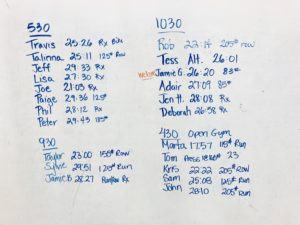 530
Travis 25:26 Rx Bike
Talinna 25:11 125# Row
Jeff 29:33 Rx
Lisa 27:30 Rx
Joe 21:03 Rx
Paige 29:36 125#
Phil 28:12 Rx
Peter 29:43 185#
930
Taylor 23:00 155# Row
Sylvie 29:51 125# Run
Jamie B 28:27 Rx
1030
Rob 22:14 205# row
Tess Alt. 26:01
Jamie G. 26:20 83#
Adair 27:09 85#
Jen H. 28:08 Rx
Deborah 26:38 Rx
430 Open Gym
Marta 17:57 115# Run
Tom 23
Kris 22:22 205# Row
Sam 25:03 125# Run
John 28:10 205# Run